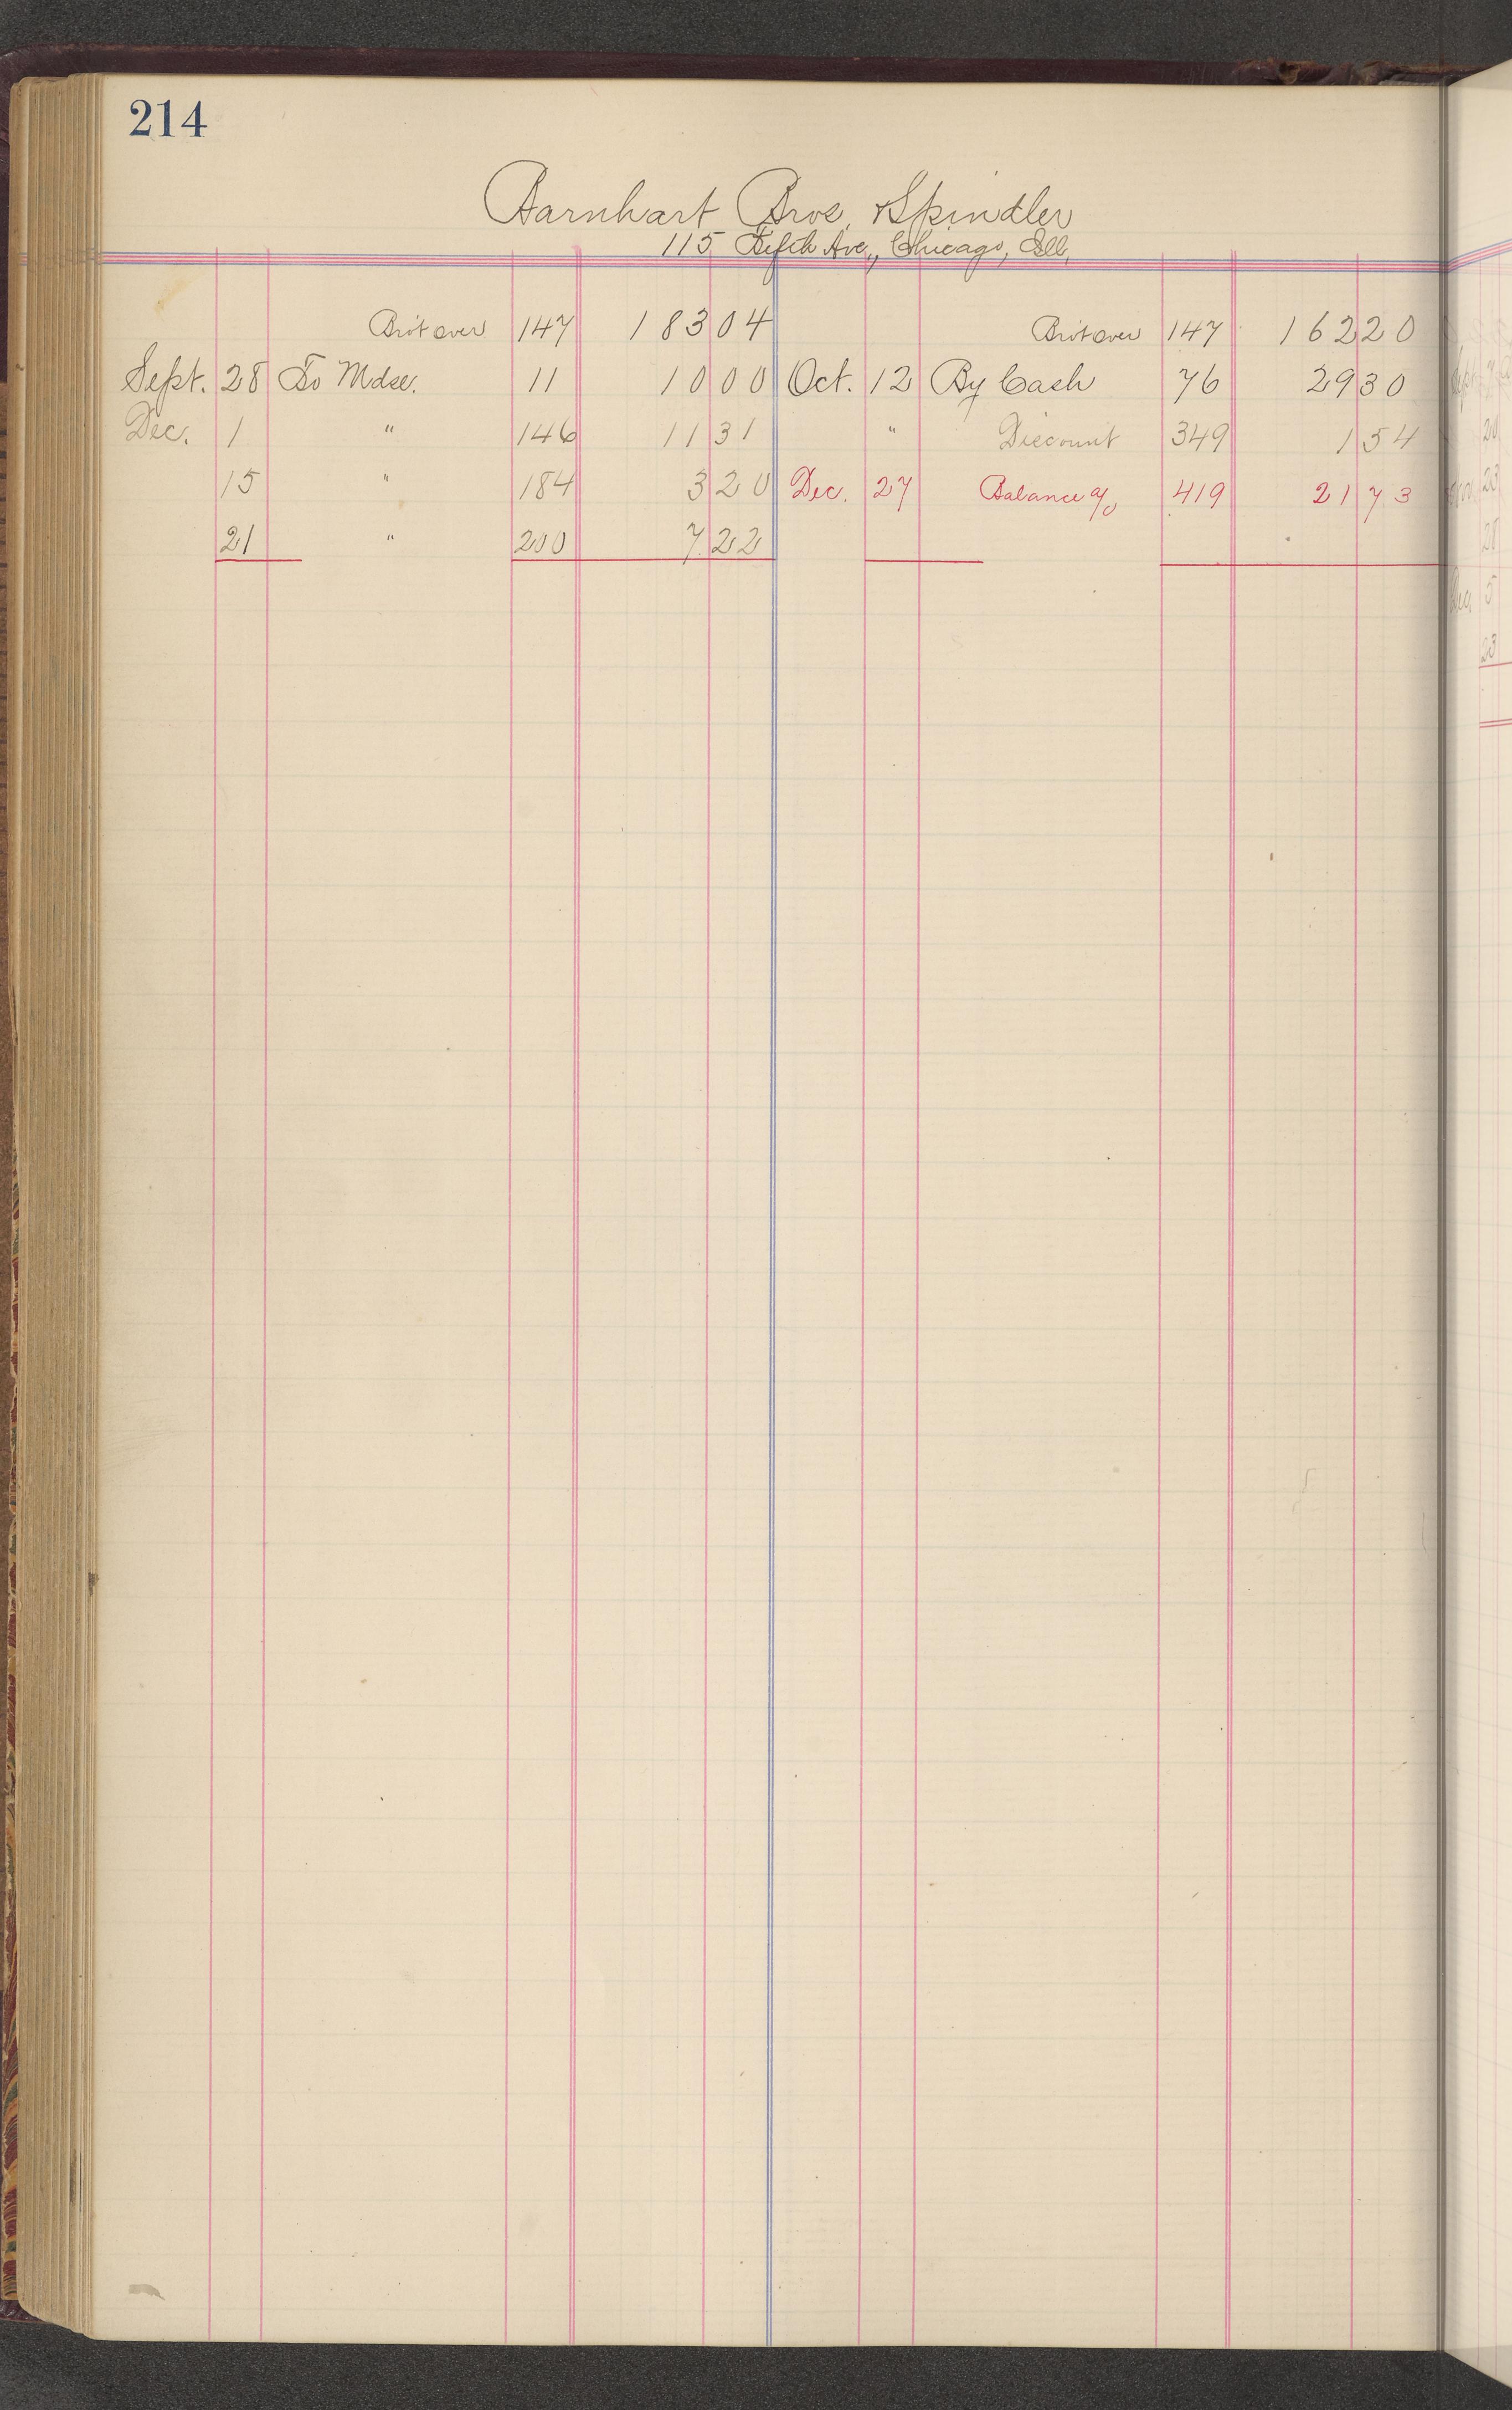 214
Barnhart Bros. & Spindler
115 Fifth Ave., Chicago, Ill.
Bro't over 147 183 04 Bro't over 147 162 20
Sept. 28 To Mdse. 11 10 00 Oct. 12 By Cash 76 29 30
Dec. 1 " 146 11 31 " Discount 349 1 54
15 " 184 3 20 Dec. 27 Balance a/c 419 21 73
21 " 200 7 22